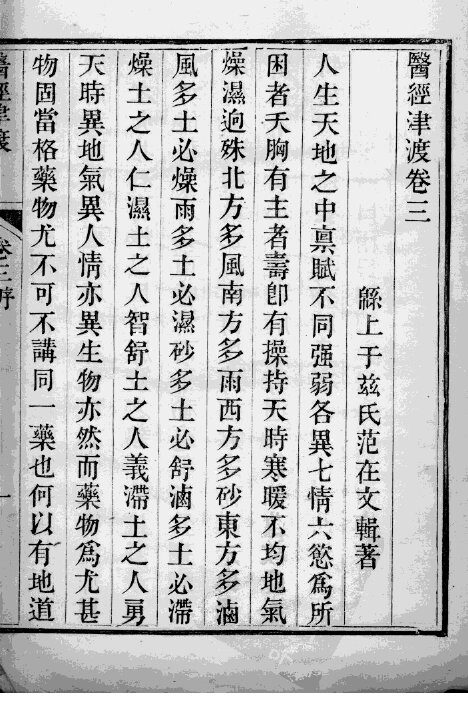 醫經津渡卷三
緜上于茲氏范在文輯著
人生天地之中稟賦不同強弱各異七情六慾爲所
困者夭胸有主者壽卽有操持天時寒暖不均地氣
燥濕逈殊北方多風南方多雨西方多砂東方多滷
風多土必燥雨多土必濕砂多土必舒滷多土必滯
燥土之人仁濕土之人智舒土之人義滯土之人勇
天時異地氣異人情亦異生物亦然而藥物爲尤甚
物固當格藥物尤不可不講同一藥也何以有地道
醫經津渡
卷三序
一